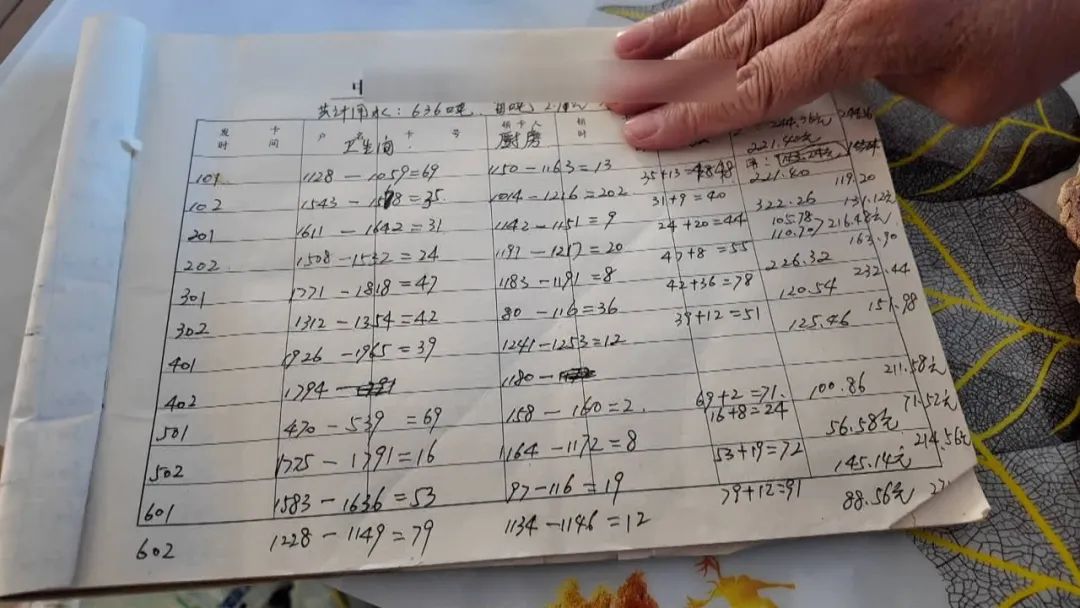 共计用水:636吨
发时 卡间 户 名 卡 号 领卡人 领时
卫生间 厨房 244.36元
221.40元
101 1128-1059=69 1150-1163=13 35+13=4848 221.40
102 1543-1578=35 1014-1216=202 31+9=40 322.26 119.20
201 1611-1642=31 1142-1151=9 24+20=44 105.78 131.12元
202 1508-1532=24 1197-1217=20 47+8=55 110.70 216.48元
301 1771-1818=47 1183-1191=8 42+36=78 226.32 163.90
302 1312-1354=42 80-116=36 39+12=51 120.54 232.44
401 1926-1965=39 1241-1253=12 125.46 151.98
402 1794- 1180-
501 470-539=69 158-160=2 69+2=71 100.86 211.58元
502 1775-1791=16 1164-1172=8 16+8=24 56.58元 71.52元
601 1583-1636=53 97-116=19 53+19=72 145.14元 214.56元
602 1228-1149=79 1134-1146=12 79+12=91 88.56元